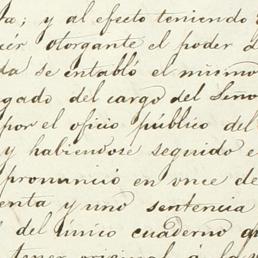 a; y al efecto teniendo
cer otorgante el poder
da se entabló el mismo
gado del cargo del Seño
por el oficio público del
y habiendose seguido e
pronunció en once de
enta y uno sentencia
del único cuaderno qu
tener original á la